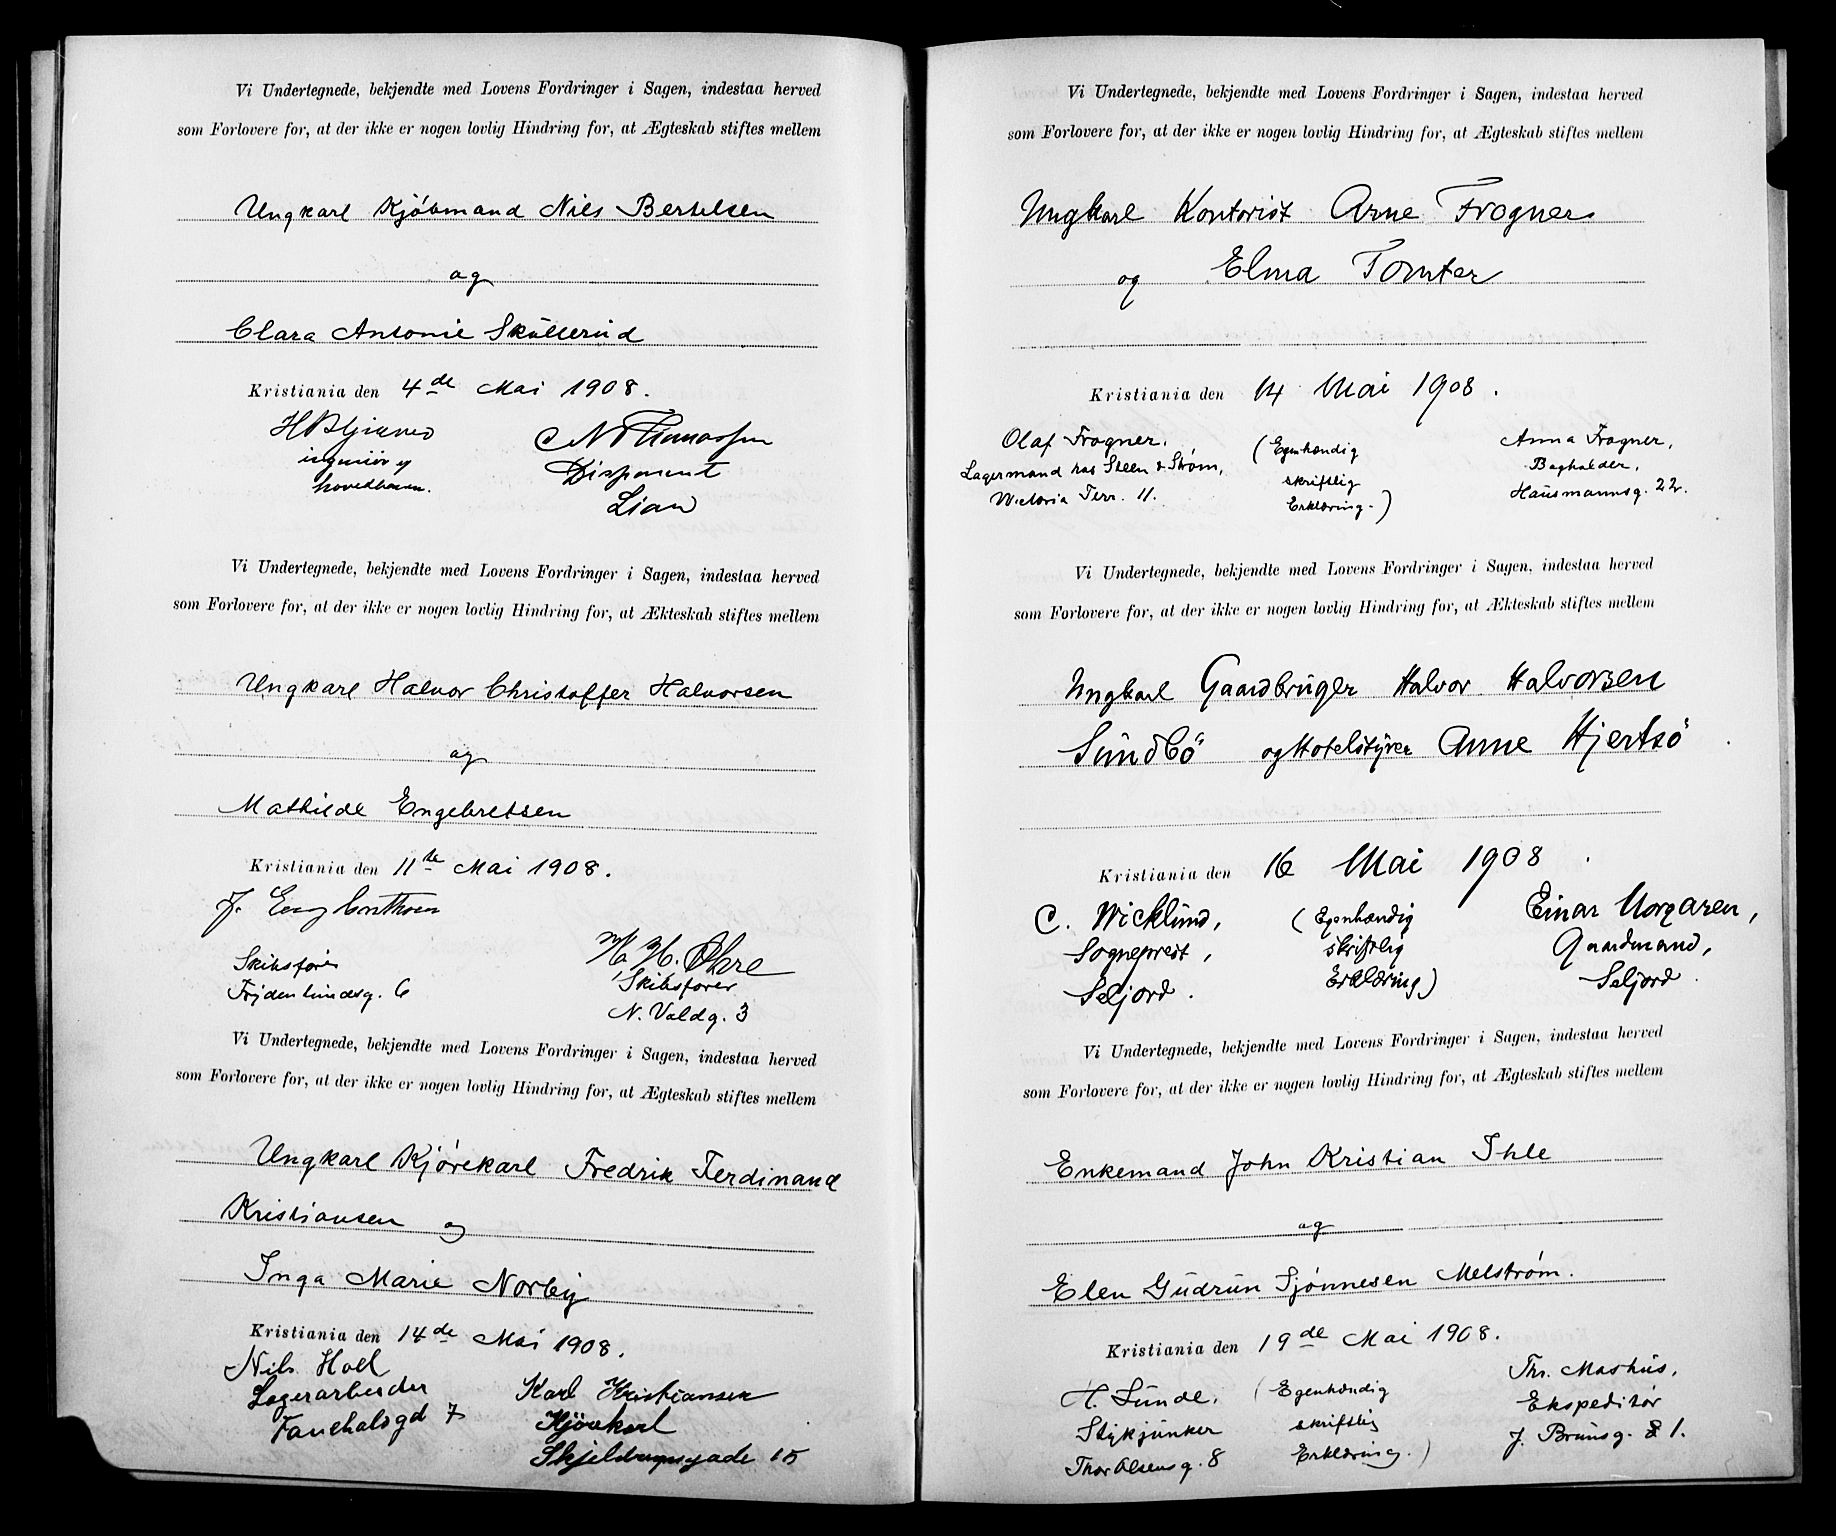 Vi Undertegnede, bekjendte med Lovens Fordringer i Sagen, indestaa herved
som Forlovere for, at der ikke er nogen lovlig Hindring for, at Ægteskab stiftes mellem
Ungkarl Kjöbmand Nils Bertelsen
og
Clara Antonie Skullerud
Kristiania den 4de Mai 1908.
Disponent
Lian
Vi Undertegnede, bekjendte med Lovens Fordringer i Sagen, indestaa herved
som Forlovere for, at der ikke er nogen lovlig Hindring for, at Ækteskab stiftes mellem
Ungkarl Halvor Christoffer Halvorsen
og
Mathilde Engebretsen
Kristiania den 11te Mai 1908.
J.
Skibsfører
6
Skibsfører
N. Voldg. 3
Vi Undertegnede, bekjendte med Lovens Fordringer i Sagen, indestaa herved
som Forlovere for, at der ikke er nogen lovlig Hindring for, at Ægteskab stiftes mellem
Ungkarl Kjørekarl Fredrik Ferdinand
Kristiansen og
Inga Marie Norby
Kristiania den 14de Mai 1908.
Nils Holl
Lagerarbeider
7
Karl Kristiansen
Kjørekarl
15
Vi Undertegnede, bekjendte med Lovens Fordringer i Sagen, indestaa herved
som Forlovere for, at der ikke er nogen lovlig Hindring for, at Ægteskab stiftes mellem
Ungkarl Kontorist Arne Frogner
og Elma Tomter
Kristiania den 14 Mai 1908.
Olaf Frogner,
Lagermand hos Steen & Strøm,
Victoria Terr. 11.
(Egenhændig
skriftlig
Erklæring.)
Anna Frogner,
Bogholder,
Hausmannsg. 22.
Vi Undertegnede, bekjendte med Lovens Fordringer i Sagen, indestaa herved
som Forlovere for, at der ikke er nogen lovlig Hindring for, at Ækteskab stiftes mellem
Ungkarl Gaardbruger Halvor Halvorsen
Sundbö og Hotelstyrer Anne Hjertsö
Kristiania den 16 Mai 1908.
C. Wicklund,
Sogneprest,
Seljord.
(Egenhændig
skriftlig
Erklæring)
Einar Norgaren,
Gaardmand,
Seljord.
Vi Undertegnede, bekjendte med Lovens Fordringer i Sagen, indestaa herved
som Forlovere for, at der ikke er nogen lovlig Hindring for, at Ægteskab stiftes mellem
Enkemand John Kristian Ihle
og
Elen Gudrun Tjønnesen Melstrøm.
Kristiania den 19de Mai 1908.
H. Sunde,
Stykjunker
Thor Olsensg. 8
(Egenhændig
skriftlig
Erklæring.)
Thr. Mashus,
Ekspeditør
J. Brunsg. 1.